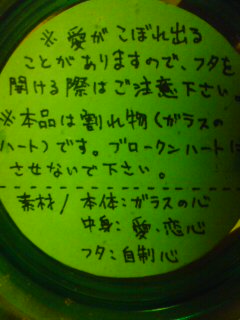 ※ 愛が こぼれ出る
ことが ありますので、フタを
開ける際は ご注意 下さい。
※ 本品は 割れ物 (ガラスの
ハート) です。ブロークンハートに
させないで 下さい。
素材 / 本体:ガラスの心
中身:愛、恋心
フタ:自制心